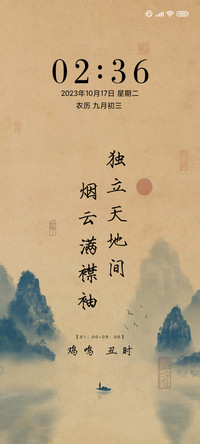 02:36
2023年10月17日 星期二
农历 九月初三
独立天地间
烟云满襟袖
【01:00-03:00】
鸡鸣 丑时